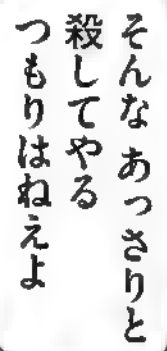 そんな あっさりと
殺してやる
つもりはねえよ